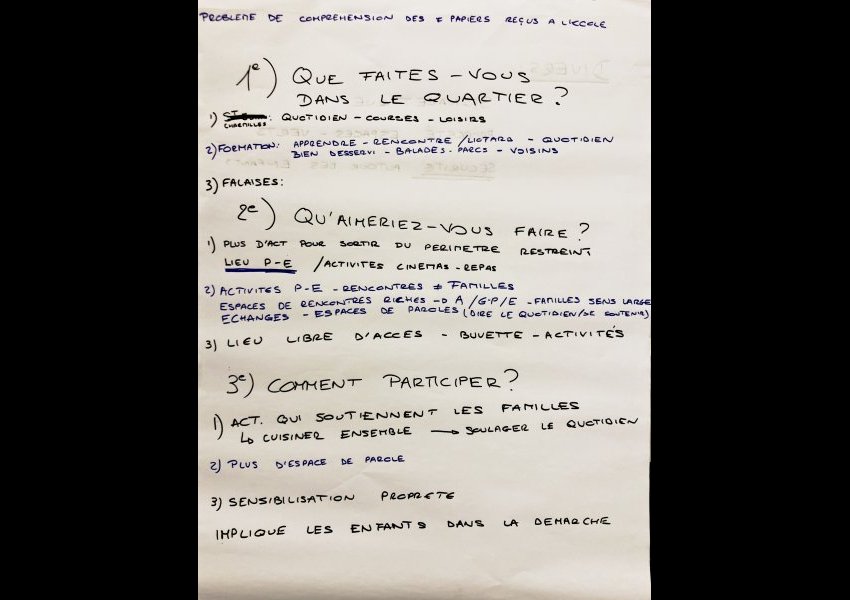 PROBLEME DE COMPREHENSION DES ≠ PAPIERS REÇUS A L'ECOLE
1e) QUE FAITES-VOUS
DANS LE QUARTIER?
1) : QUOTIDIEN - COURSES - LOISIRS
CHARMILLES
2) FORMATION: APPRENDRE - RENCONTRE / LIOTARD - QUOTIDIEN
BIEN DESSERVI - BALADES - PARCS - VOISINS
3) FALAISES:
2e) QU'AIMERIEZ-VOUS FAIRE?
1) PLUS D'ACT POUR SORTIR DU PERIMETRE RESTREINT
LIEU P-E / ACTIVITES CINEMAS - REPAS
2) ACTIVITES P-E - RENCONTRES ≠ FAMILLES
ESPACES DE RENCONTRES RICHES - D A / G.P / E - FAMILLES SENS LARGE
ECHANGES - ESPACES DE PAROLES (DIRE LE QUOTIDIEN/SE SOUTENIR)
3) LIEU LIBRE D'ACCES - BUVETTE - ACTIVITÉS
3e) COMMENT PARTICIPER?
1) ACT. QUI SOUTIENNENT LES FAMILLES
↳ CUISINER ENSEMBLE → SOULAGER LE QUOTIDIEN
2) PLUS D'ESPACE DE PAROLE
3) SENSIBILISATION PROPRETE
IMPLIQUE LES ENFANTS DANS LA DEMARCHE